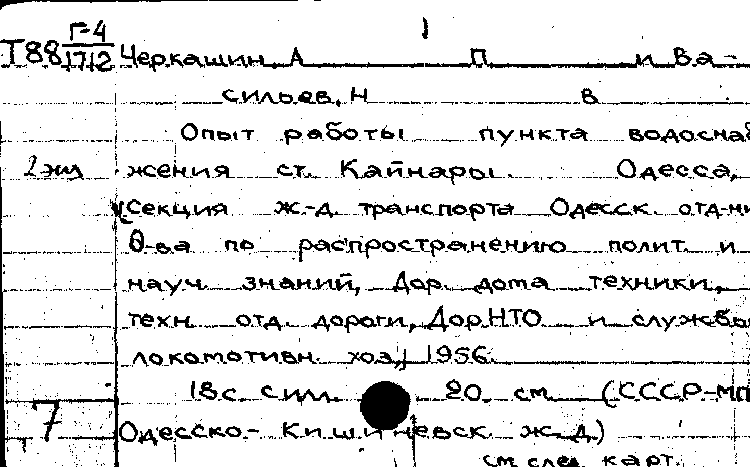 Г-4 1
Т88 1712 Черкашин, А П и Ва-
сильев, Н В
Опыт работы пункта водоснаб
2 экз жения ст. Кайнары. Одесса,
секция ж.-д. транспорта Одесск. отд-ни
О-ва по распространению полит. и
науч. знаний, Дор. дома техники,
техн. отд. дороги, Дор.НТО и службы
локомотивн. хоз.] 1956.
18 с. с илл. 20 см. (СССР-МП
7 Одесско-Кишиневск ж.-д.)
см. след. карт.